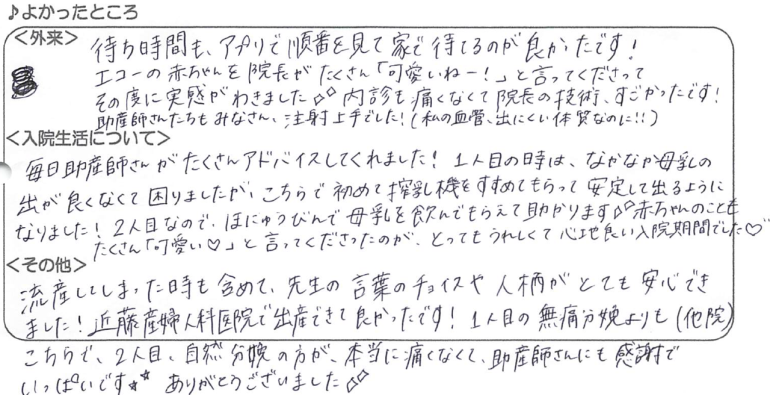 ♪よかったところ
<外来> 待ち時間も、アプリで順番を見て家で待てるのが良かったです!
エコーの赤ちゃんを院長がたくさん「可愛いねー!」と言ってくださって
その度に実感がわきました♪♪ 内診も痛くなくて院長の技術、すごかったです!
助産師さんたちもみなさん、注射上手でした!(私の血管、出にくい体質なのに!!)
<入院生活について>
毎日助産師さんがたくさんアドバイスしてくれました! 1人目の時は、なかなか母乳の
出が良くなくて困りましたが、こちらで初めて搾乳機をすすめてもらって安定して出るように
なりました! 2人目なので、ほにゅうびんで母乳を飲んでもらえて助かります♪♪赤ちゃんのことも
たくさん「可愛い♡」と言ってくださったのが、とってもうれしくて心地良い入院期間でした♡
<その他>
流産してしまった時も含めて、先生の言葉のチョイスや人柄がとても安心でき
ました! 近藤産婦人科医院で出産できて良かったです! 1人目の無痛分娩よりも(他院)
こちらで、2人目、自然分娩の方が、本当に痛くなくて、助産師さんにも感謝で
いっぱいです☆☆ ありがとうございました♪♪